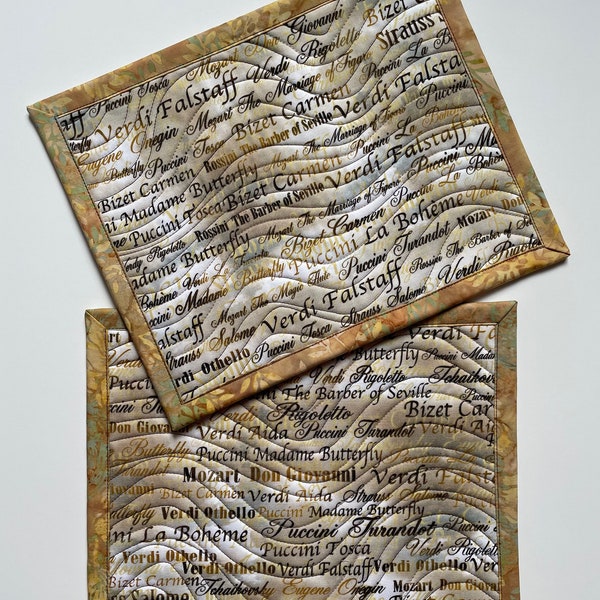 Mozart Don Giovanni Bizet
Puccini Tosca Verdi Rigoletto Strauss
Verdi Falstaff Puccini La
Eugene Onegin Mozart The Marriage of Figaro Bizet Carmen
Puccini Tosca Rossini The Barber of Seville Verdi Falstaff
Bizet Carmen Mozart The Marriage of Figaro Puccini La
Madame Butterfly Bizet Carmen Verdi Falstaff
Puccini Tosca Rossini The Barber of Seville Puccini La Bohème
Rigoletto Mozart The Marriage of Figaro Mozart Don
Madame Butterfly Bizet Carmen Puccini La Bohème
Bohème Verdi Puccini Turandot Rossini The Barber of
Puccini Madame Butterfly Mozart The Magic Flute Verdi
Falstaff Verdi Falstaff Strauss Salome
Strauss Salome Puccini Tosca
Verdi Othello
Turandot Verdi Falstaff
Mozart Butterfly Puccini Madame
Verdi Rigoletto Tchaikovsky
Puccini The Barber of Seville
Rigoletto Bizet Carmen
Don Giovanni Verdi Aida Puccini Turandot
Butterfly Puccini Madame Butterfly
Mozart Don Giovanni Verdi Falstaff
Giovanni Bizet Carmen Verdi Aida Strauss Salome
Butterfly Verdi Othello Puccini Madame Butterfly
La Bohème Puccini Turandot
Verdi Othello Puccini Tosca Verdi Rigoletto
Bizet Carmen Verdi Falstaff Verdi Othello
Salome Tchaikovsky Eugene Onegin Mozart Don Giovanni